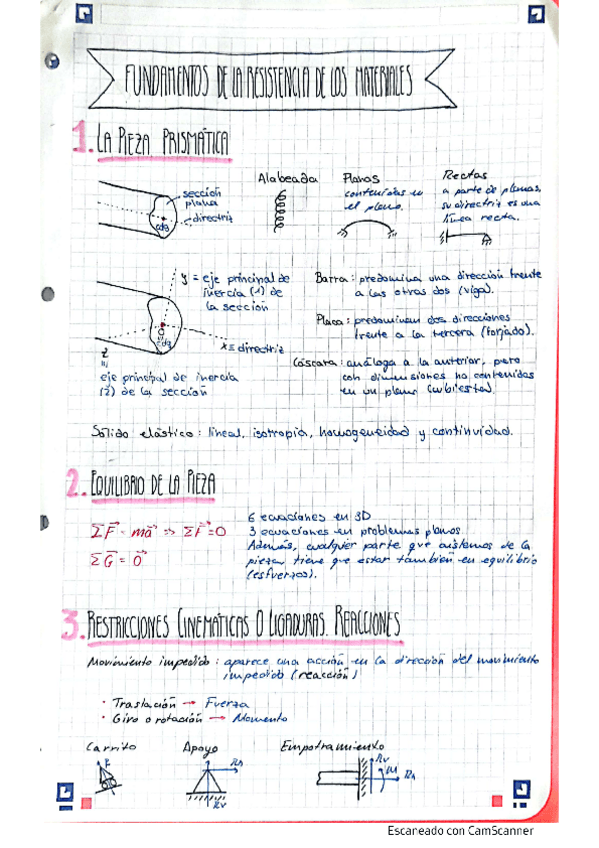 FUNDAMENTOS DE LA RESISTENCIA DE LOS MATERIALES
1. LA PIEZA PRISMÁTICA
sección
plana
directriz
cdg
Alabeada
Planas
contenidas en
el plano.
Rectas
a parte de planas,
su directriz es una
línea recta.
y = eje principal de
inercia (1) de
la sección
cdg
x = directriz
z
eje principal de inercia
(2) de la sección
Barra: predomina una dirección frente
a las otras dos (viga).
Placa: predominan dos direcciones
frente a la tercera (forjado).
Cáscara: análoga a la anterior, pero
con dimensiones no contenidas
en un plano (cubiertas).
Sólido elástico: lineal, isotropía, homogeneidad y continuidad.
2. EQUILIBRIO DE LA PIEZA
ΣF = ma => ΣF = 0
ΣG = 0
6 ecuaciones en 3D
3 ecuaciones en problemas planos
Además, cualquier parte que aislemos de la
pieza tiene que estar también en equilibrio
(esfuerzos).
3. RESTRICCIONES CINEMÁTICAS O LIGADURAS. REACCIONES
Movimiento impedido: aparece una acción en la dirección del movimiento
impedido (reacción)
· Traslación → Fuerza
· Giro o rotación → Momento
Carrito
Apoyo
Empotramiento
R
Rh
Rv
Rv
M
Rh
Escaneado con CamScanner